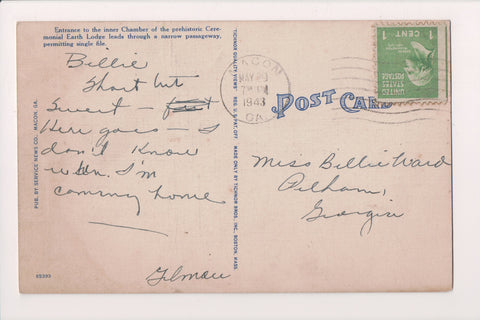 Entrance to the inner Chamber of the prehistoric Cere-
monial Earth Lodge leads through a narrow passageway,
permitting single file.
Billie
Short but
Sweet —
Here goes — I
don't know
when I'm
comming home
Gilman
PUB. BY SERVICE NEWS CO., MACON, GA.
65393
TICHNOR QUALITY VIEWS REG. U. S. PAT. OFF. MADE ONLY BY TICHNOR BROS., INC., BOSTON, MASS.
MACON
MAY
1943
GA.
POST CARD
1 CENT 1
UNITED STATES
POSTAGE
Miss Billie Ward
Pelham,
Georgia